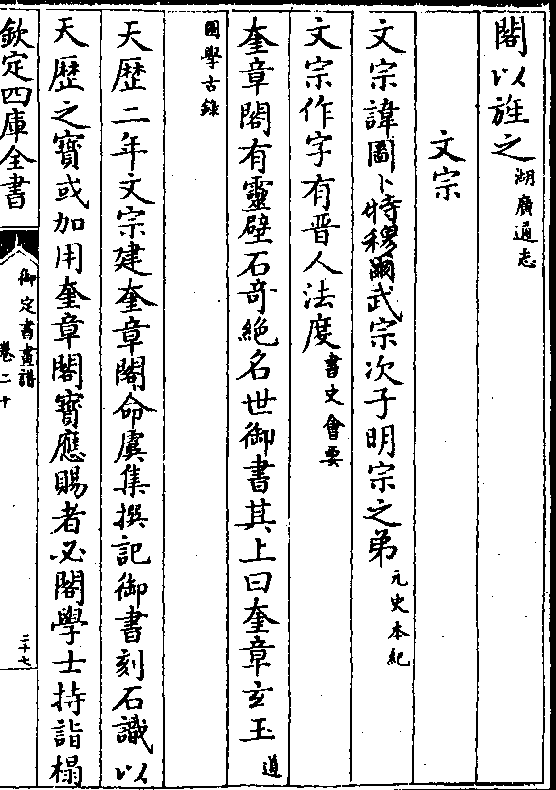 閣以旌之湖廣通志
文宗
文宗諱圖卜特穆爾武宗次子明宗之弟元史本紀
文宗作字有晋人法度書史會要
奎章閣有靈壁石竒絶名世御書其上曰奎章玄玉道
園學古錄
天歷二年文宗建奎章閣命虞集撰記御書刻石識以
天歷之寳或加用奎章閣寳應賜者必閣學士持詣榻
欽定四庫全書
御定書畫譜
卷二十
二十七